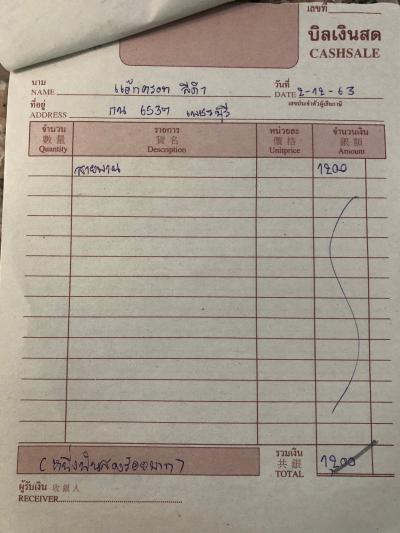 เลขที่
บิลเงินสด
CASHSALE
นาม
NAME
วันที่
DATE 2-12-63
เลขประจำตัวผู้เสียภาษี
ที่อยู่
ADDRESS กน 6537 เพชรบุรี
จำนวน รายการ หน่วยละ จำนวนเงิน
數量 貨名 價格 銀額
Quantity Description Unitprice Amount
สายพาน 1200
(หนึ่งพันสองร้อยบาท)
รวมเงิน
共銀
TOTAL 1200
ผู้รับเงิน 收銀人
RECEIVER